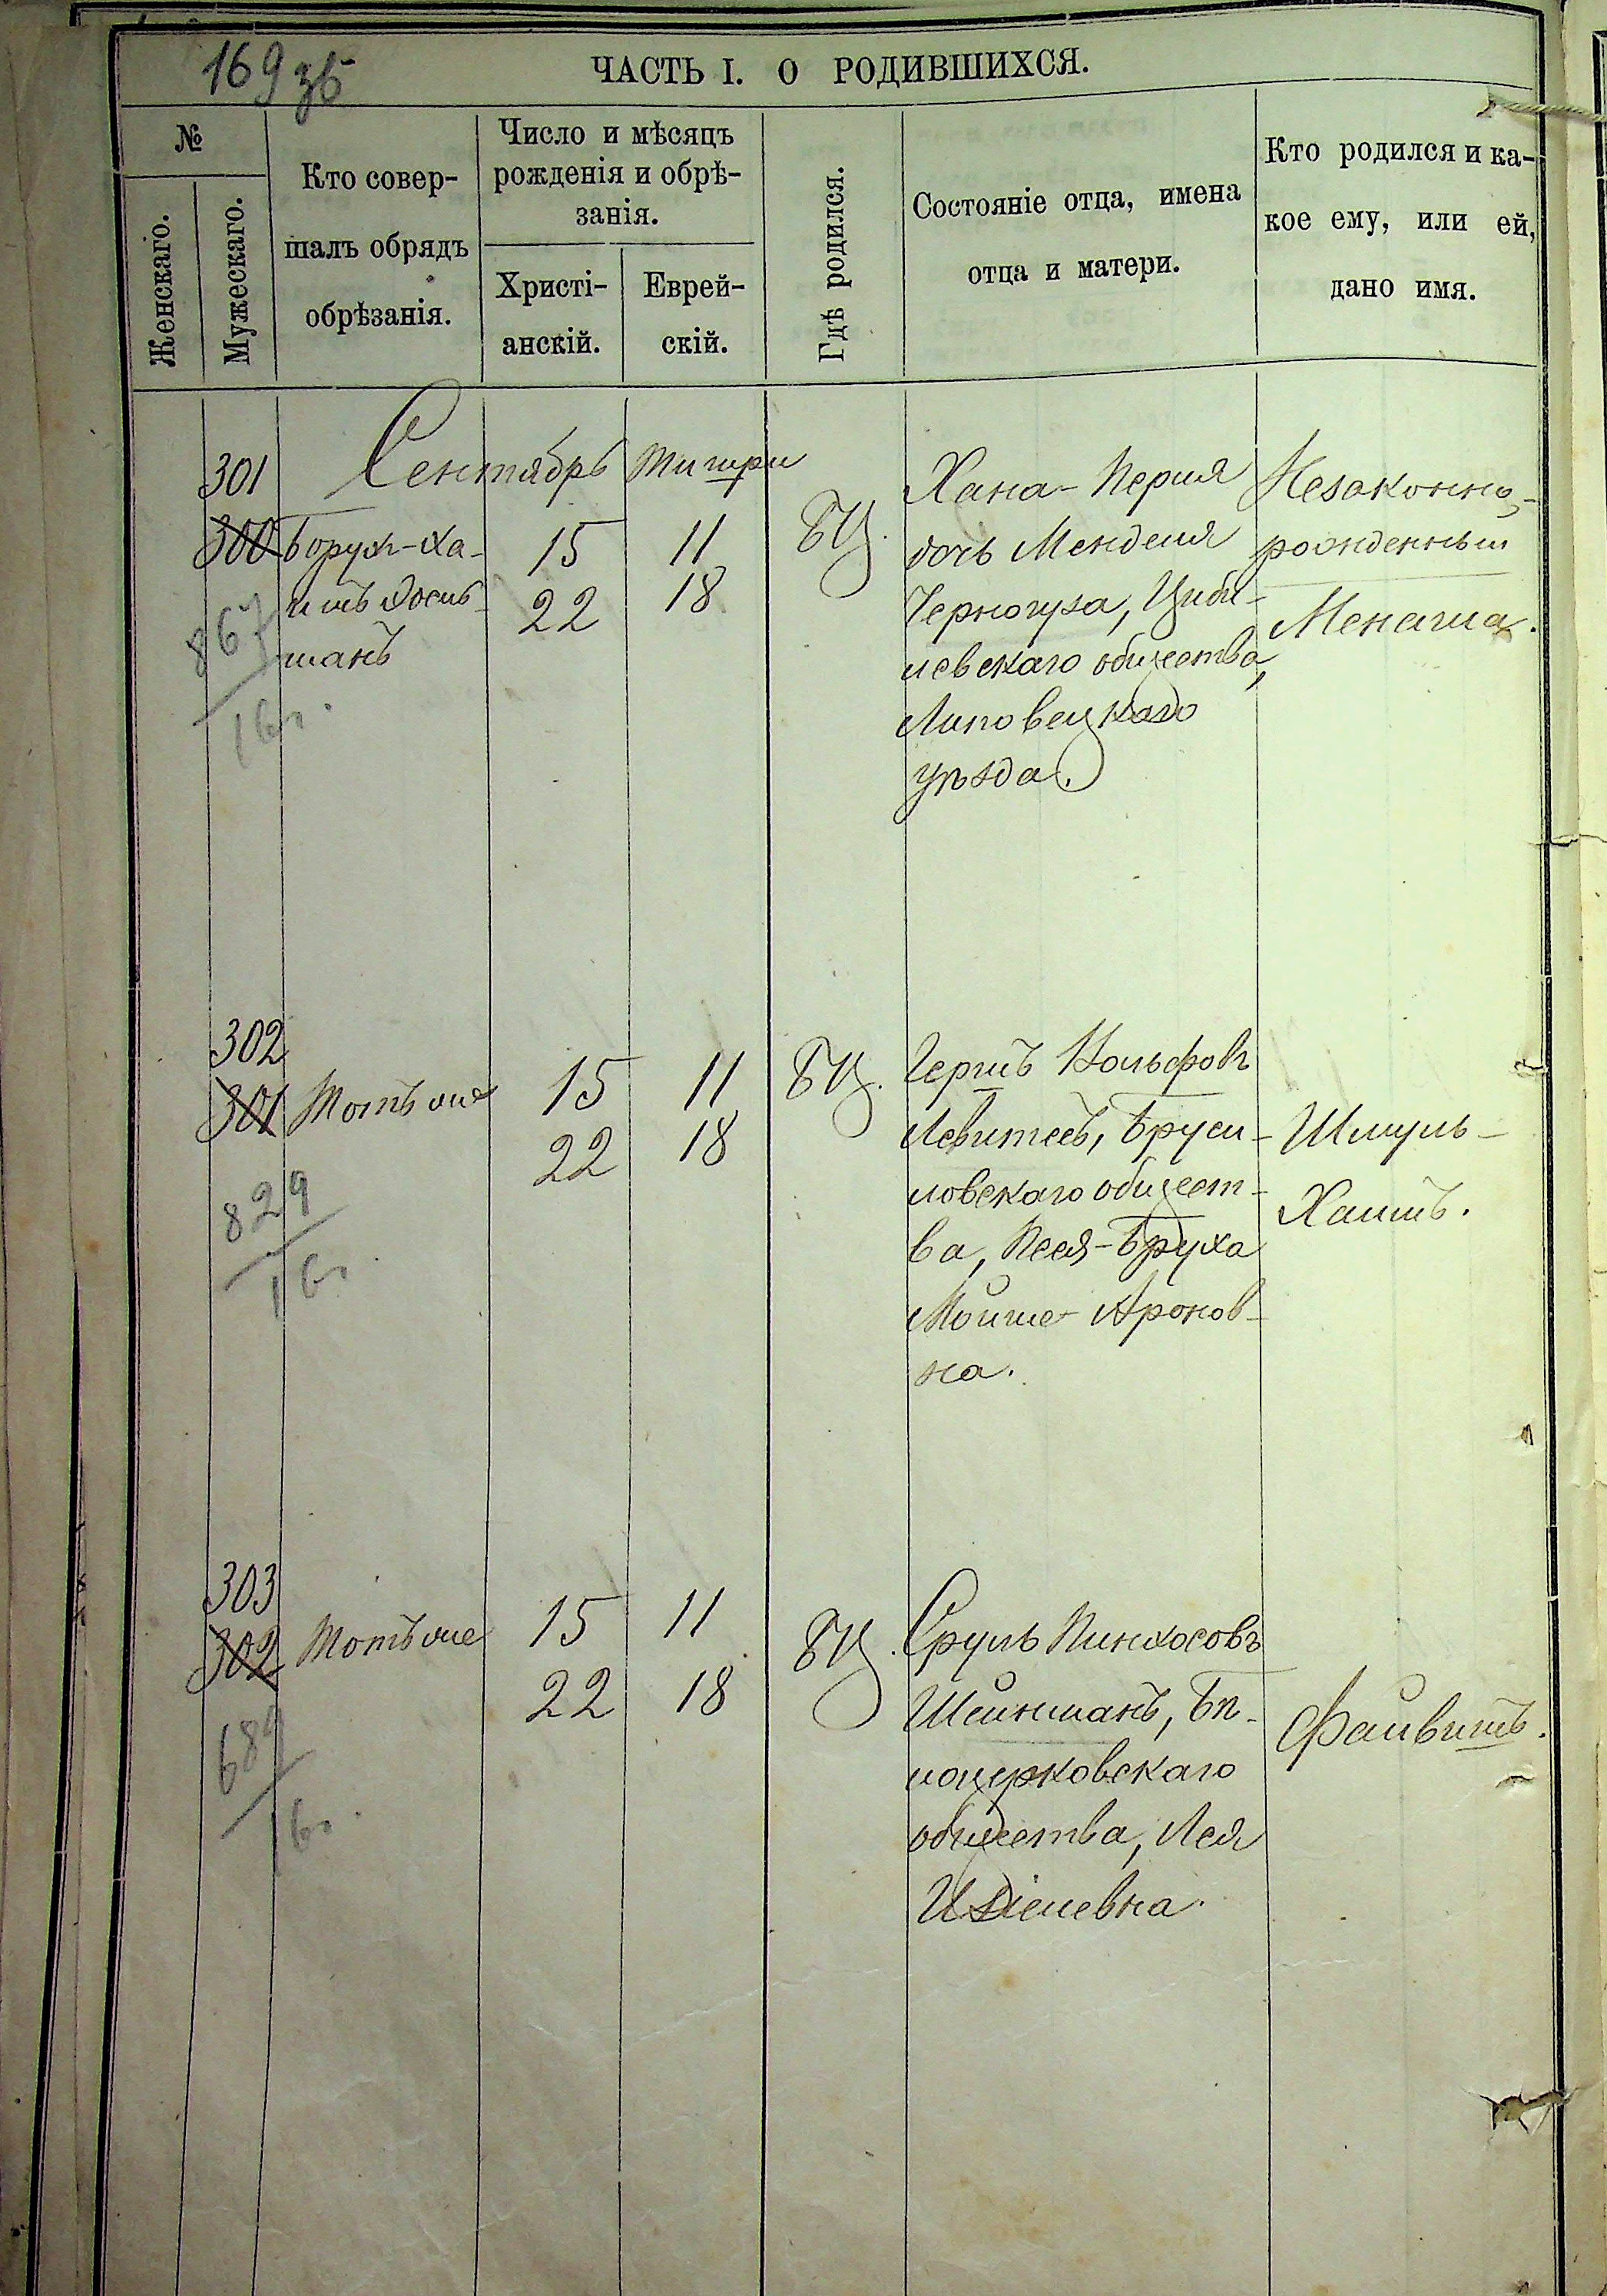 169 зв
ЧАСТЬ I. О РОДИВШИХСЯ.
№
Женскаго.
Мужескаго.
Кто совер-
шалъ обрядъ
обрѣзанія.
Число и мѣсяцъ
рожденія и обрѣ-
занія.
Христі-
анскій.
Еврей-
скій.
Гдѣ родился.
Состояніе отца, имена
отца и матери.
Кто родился и ка-
кое ему, или ей,
дано имя.
Сентябрь Тишри
301
300
Борух-Ха-
имъ
манъ
867
16г.
15
22
11
18
БЦ.
Хана-Перля
дочь Менделя
Черногуза, Циби-
левскаго общества,
Липовецкаго
уѣзда.
Незаконно-
рожденный
Менаша.
302
301
Тотъ же
829
16г.
15
22
11
18
БЦ.
Гершъ Вольфовъ
Левитесъ, Бруси-
ловскаго общест-
ва, Песя-Бруха
Мойше-Аронов-
на.
Шмуль-
Хаимъ.
303
302
Тотъ же
689
16г.
15
22
11
18
БЦ.
Сруль Пинхосовъ
Шейнманъ, Бѣ-
лоцерковскаго
общества, Лея
Ихіелевна.
Файвишъ.